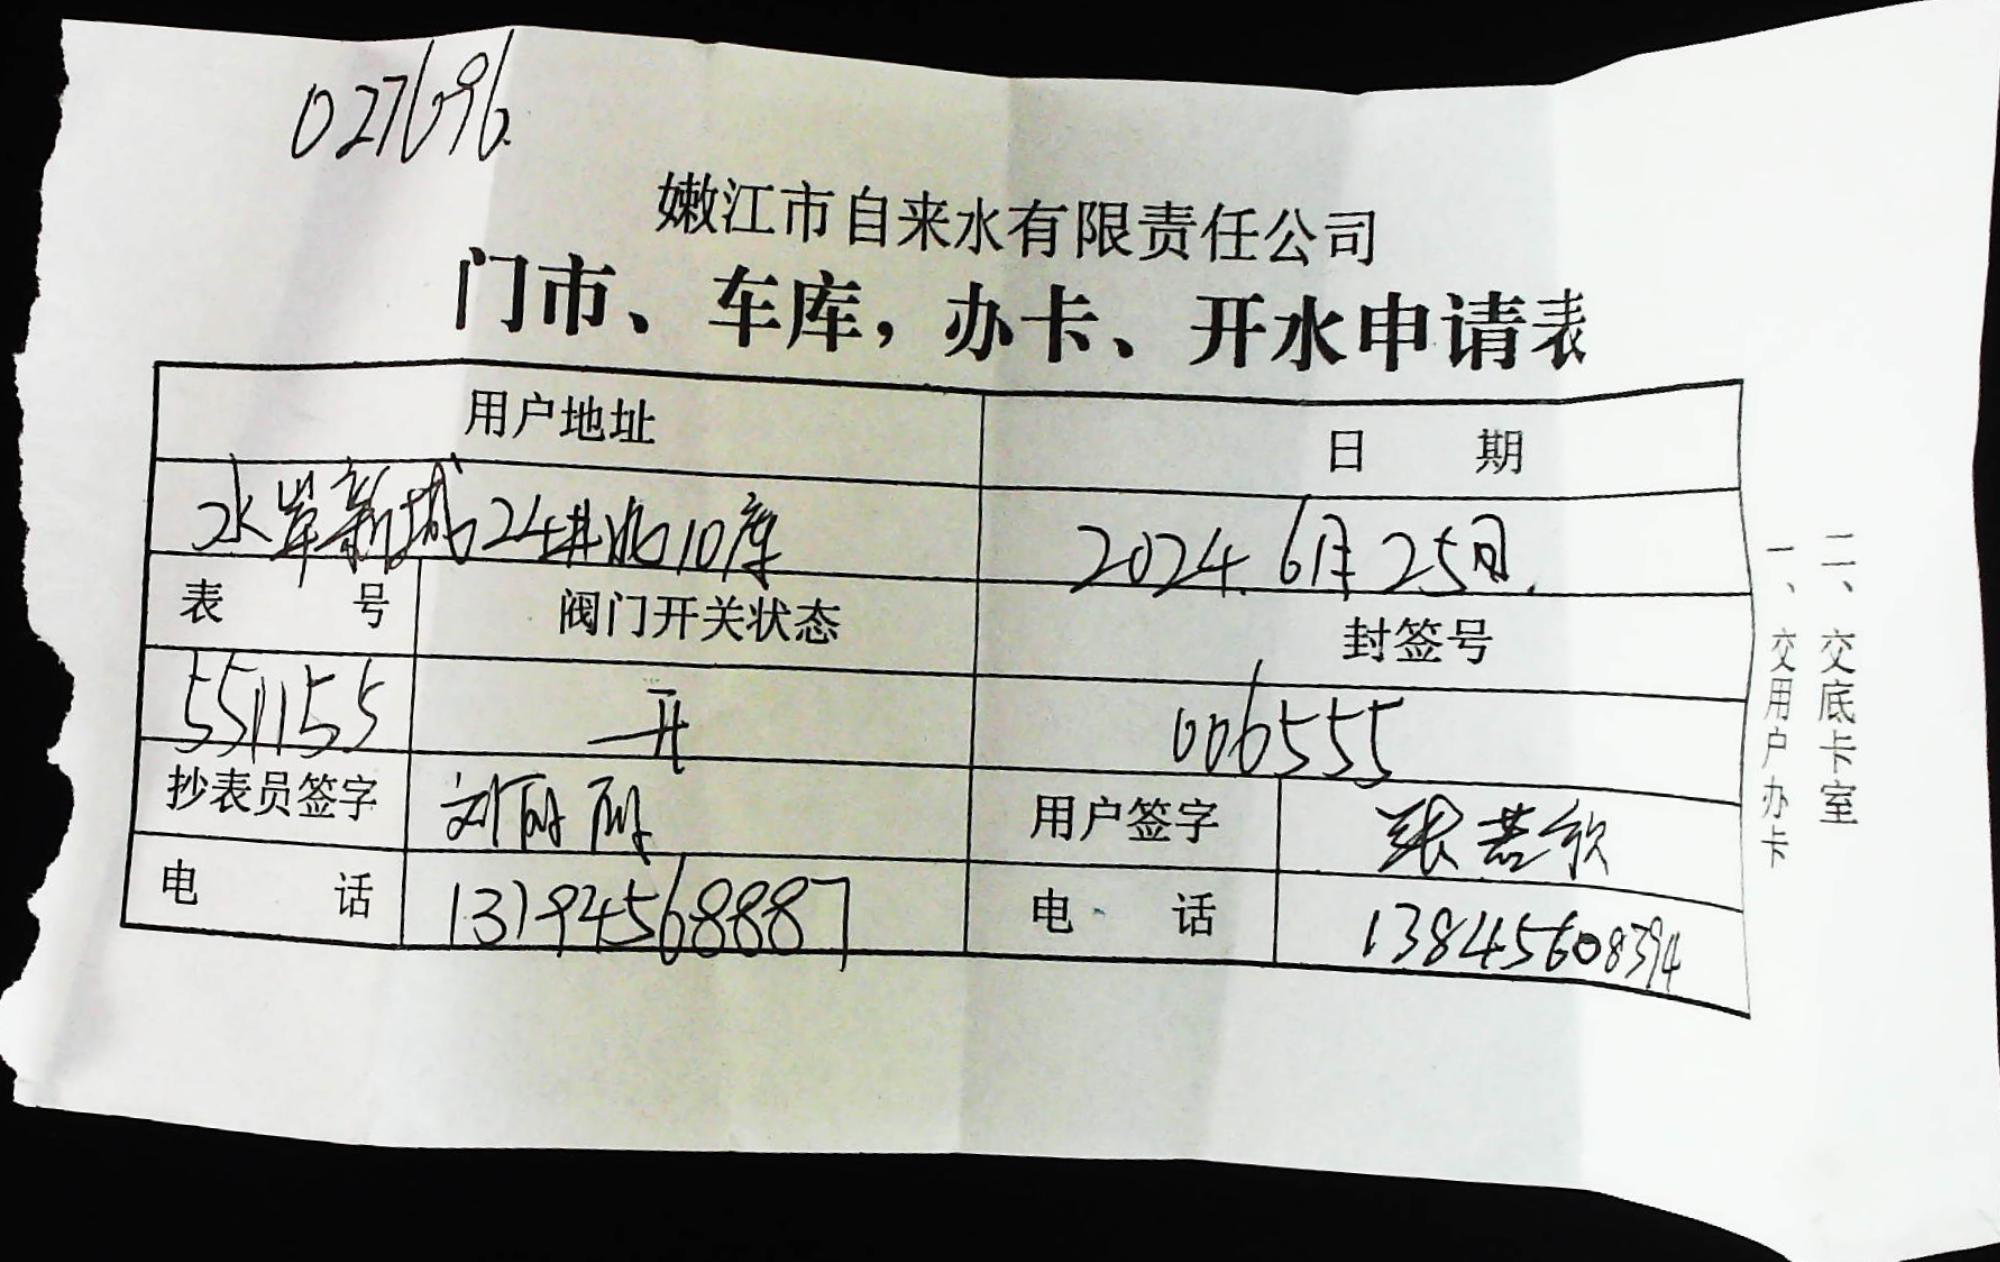 027696.
嫩江市自来水有限责任公司
门市、车库，办卡、开水申请表
用户地址 日 期
水岸新城24#北10库 2024.6月25日.
表 号 阀门开关状态 封签号
551155 开 006555
抄表员签字 刘丽丽 用户签字 张若欣
电 话 13194568887 电 话 13845608394
一、交用户办卡
二、交底卡室